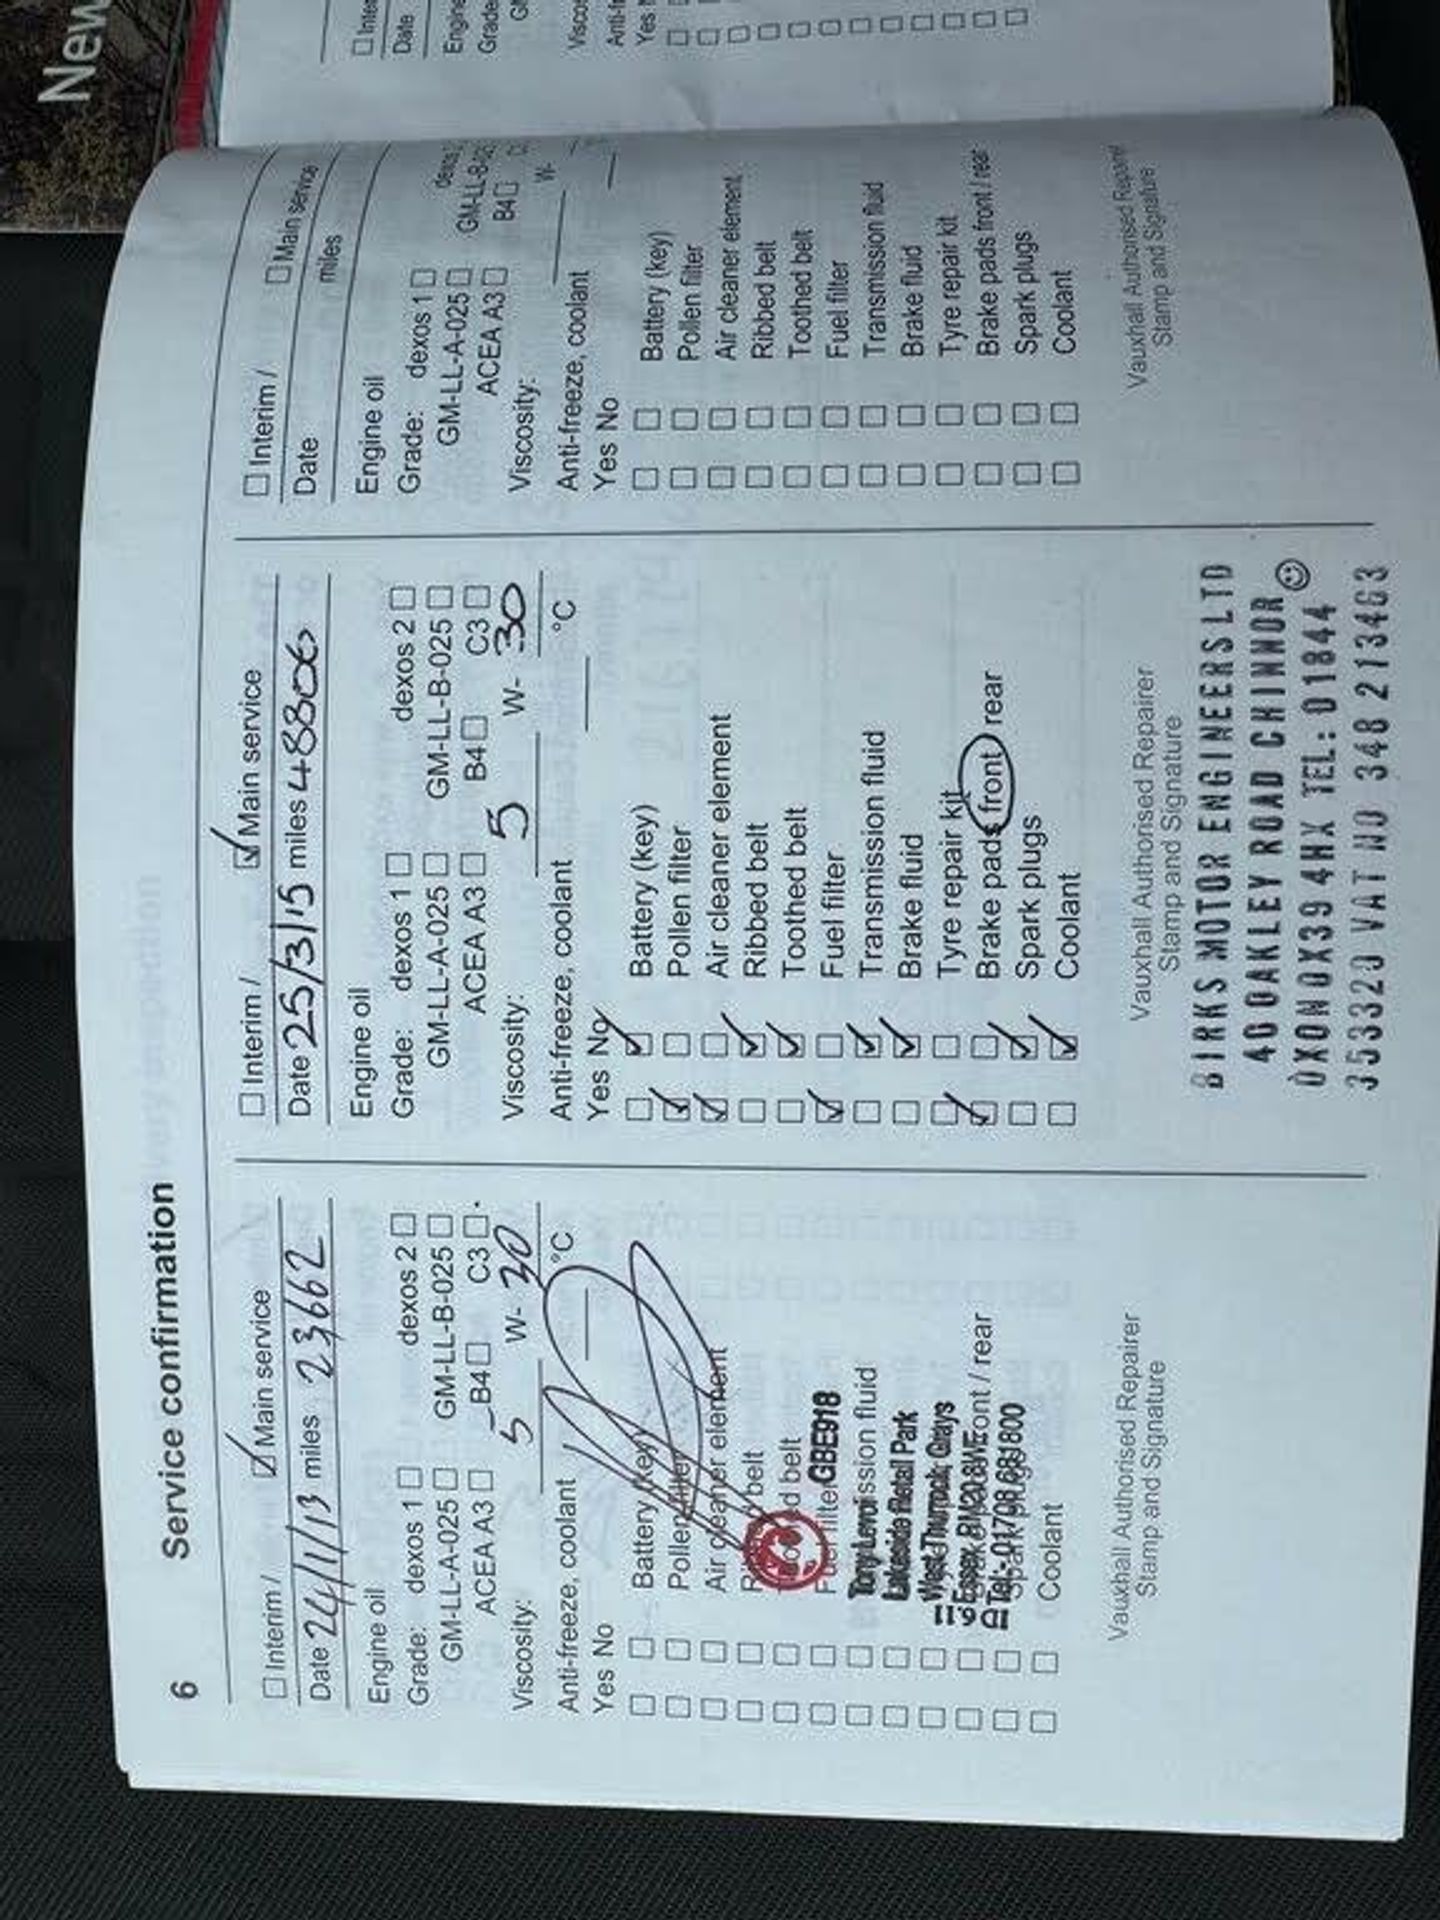 New
6 Service confirmation
Interim / Main service
Date 24/1/13 miles 23662
Engine oil
Grade: dexos 1 dexos 2
GM-LL-A-025 GM-LL-B-025
ACEA A3 B4 C3
Viscosity: 5 W- 30
Anti-freeze, coolant °C
Yes No
Battery (key)
Pollen filter
Air cleaner element
Ribbed belt
Toothed belt
Fuel filter GBE918
Transmission fluid
Lakeside Retail Park
West Thurrock, Grays
Essex, RM20 front / rear
Tel:- 01708 681800
Coolant
Vauxhall Authorised Repairer
Stamp and Signature
Interim / Main service
Date 25/3/15 miles 48806
Engine oil
Grade: dexos 1 dexos 2
GM-LL-A-025 GM-LL-B-025
ACEA A3 B4 C3
Viscosity: 5 W- 30
Anti-freeze, coolant °C
Yes No
Battery (key)
Pollen filter
Air cleaner element
Ribbed belt
Toothed belt
Fuel filter
Transmission fluid
Brake fluid
Tyre repair kit
Brake pads front / rear
Spark plugs
Coolant
Vauxhall Authorised Repairer
Stamp and Signature
BIRKS MOTOR ENGINEERS LTD
40 OAKLEY ROAD CHINNOR
OXON OX39 4HX TEL: 01844
353320 VAT NO 348 213463
Interim / Main service
Date miles
Engine oil
Grade: dexos 1 dexos
GM-LL-A-025 GM-LL-B-025
ACEA A3 B4
Viscosity: W-
Anti-freeze, coolant
Yes No
Battery (key)
Pollen filter
Air cleaner element
Ribbed belt
Toothed belt
Fuel filter
Transmission fluid
Brake fluid
Tyre repair kit
Brake pads front / rear
Spark plugs
Coolant
Vauxhall Authorised Repairer
Stamp and Signature
Date
Engine
Grade
Yes